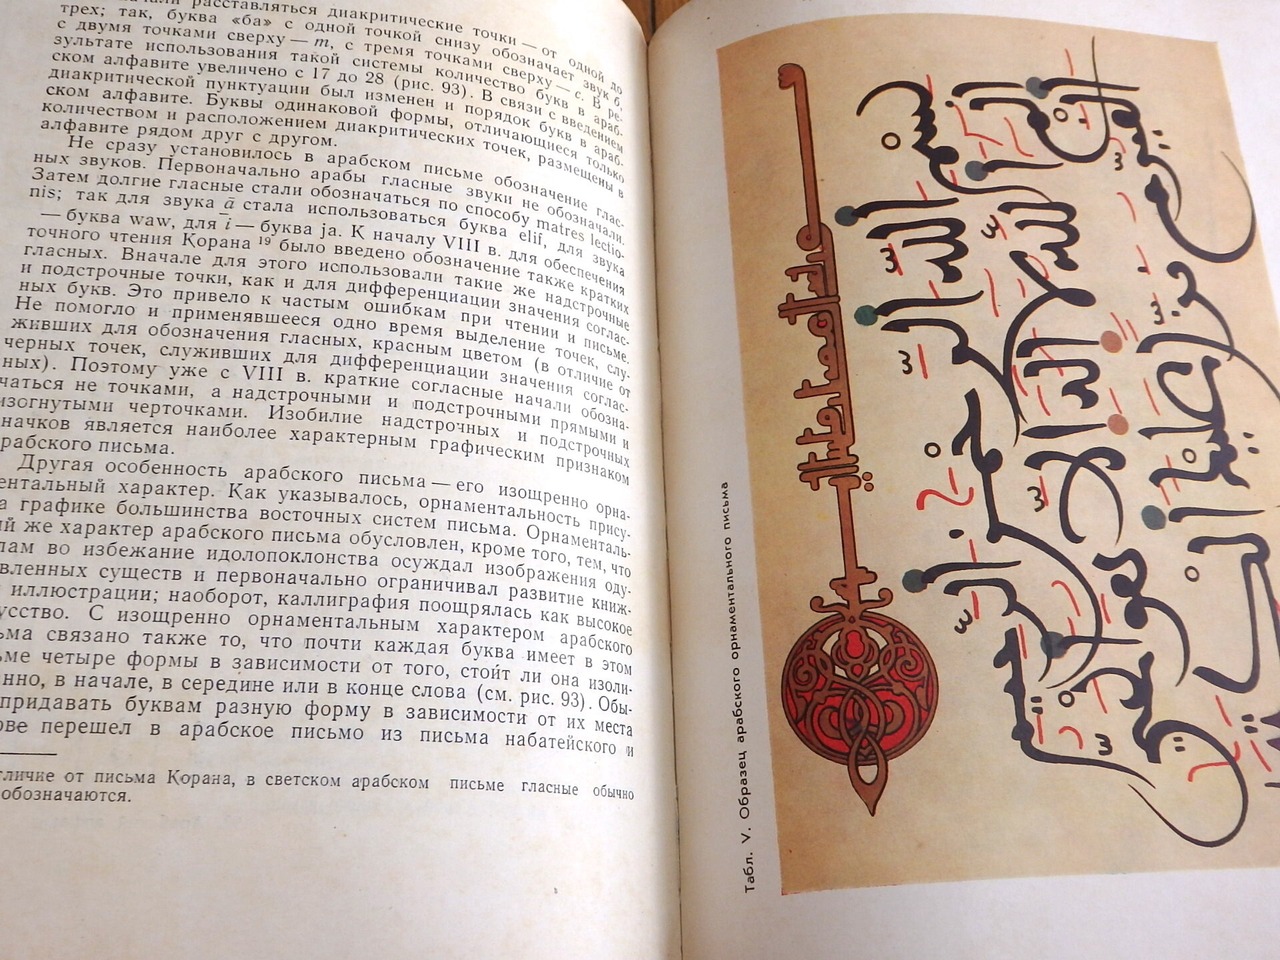 расставляться диакритические точки — от одной до
трех; так, буква «ба» с одной точкой снизу обозначает звук б,
с двумя точками сверху — т, с тремя точками сверху — с. В ре-
зультате использования такой системы количество букв в араб-
ском алфавите увеличено с 17 до 28 (рис. 93). В связи с введением
диакритической пунктуации был изменен и порядок букв в араб-
ском алфавите. Буквы одинаковой формы, отличающиеся только
количеством и расположением диакритических точек, размещены в
алфавите рядом друг с другом.
Не сразу установилось в арабском письме обозначение глас-
ных звуков. Первоначально арабы гласные звуки не обозначали.
Затем долгие гласные стали обозначаться по способу matres lectio-
nis; так для звука ā стала использоваться буква elif, для звука
— буква waw, для ī — буква ja. К началу VIII в. для обеспечения
точного чтения Корана 19 было введено обозначение также кратких
гласных. Вначале для этого использовали такие же надстрочные
и подстрочные точки, как и для дифференциации значения соглас-
ных букв. Это привело к частым ошибкам при чтении и письме.
Не помогло и применявшееся одно время выделение точек, слу-
живших для обозначения гласных, красным цветом (в отличие от
черных точек, служивших для дифференциации значения соглас-
ных). Поэтому уже с VIII в. краткие согласные начали обозна-
чаться не точками, а надстрочными и подстрочными прямыми и
изогнутыми черточками. Изобилие надстрочных и подстрочных
значков является наиболее характерным графическим признаком
рабского письма.
Другая особенность арабского письма — его изощренно орна-
ентальный характер. Как указывалось, орнаментальность прису-
а графике большинства восточных систем письма. Орнаменталь-
й же характер арабского письма обусловлен, кроме того, тем, что
лам во избежание идолопоклонства осуждал изображения оду-
вленных существ и первоначально ограничивал развитие книж-
иллюстрации; наоборот, каллиграфия поощрялась как высокое
усство. С изощренно орнаментальным характером арабского
ьма связано также то, что почти каждая буква имеет в этом
ьме четыре формы в зависимости от того, стоит ли она изоли-
нно, в начале, в середине или в конце слова (см. рис. 93). Обы-
придавать буквам разную форму в зависимости от их места
ове перешел в арабское письмо из письма набатейского и
тличие от письма Корана, в светском арабском письме гласные обычно
обозначаются.
Табл. V. Образец арабского орнаментального письма
بسم الله الرحمن الرحيم